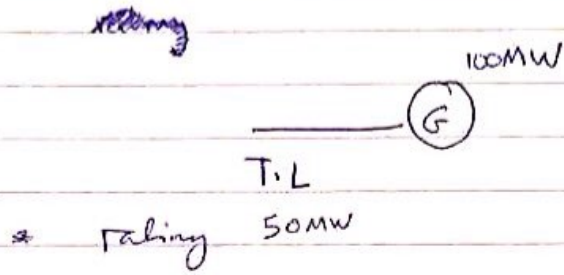 100MW
G
T.L
* rating 50MW